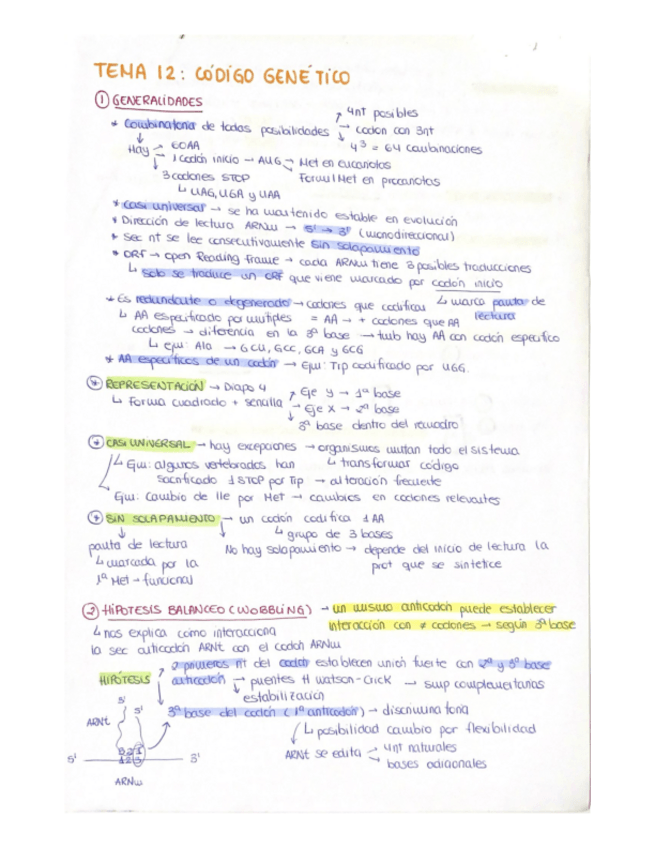 TEMA 12: CÓDIGO GENÉTICO
① GENERALIDADES
* Combinatoria de todas posibilidades ↗ 4nt posibles
→ codon con 3nt
↘ 4³ = 64 combinaciones
Hay → 20AA
→ 1 codón inicio → AUG → Met en eucariotas
Formil Met en procariotas
3 codones STOP
↳ UAG, UGA y UAA
* Casi universal → se ha mantenido estable en evolución
* Dirección de lectura ARNm → 5' → 3' (monodireccional)
* Sec nt se lee consecutivamente sin solapamiento
* ORF → open Reading frame → cada ARNm tiene 3 posibles traducciones
↳ Solo se traduce un ORF que viene marcado por codón inicio
↳ marca pauta de lectura
* Es redundante o degenerado → codones que codifican
↳ AA especificado por multiples = AA → + codones que AA
codones → diferencia en la 3ª base → tmb hay AA con codón específico
↳ Ejm: Ala → GCU, GCC, GCA y GCG
* AA específicos de un codón → Ejm: Trp codificado por UGG.
* REPRESENTACIÓN → Diapo 4
↳ Forma cuadrado + sencilla ↗ Eje y → 1ª base
→ Eje x → 2ª base
↘ 3ª base dentro del recuadro
* CASI UNIVERSAL → hay excepciones → organismos mutan todo el sistema
↳ transformar código
↳ Ejm: algunos vertebrados han
sacrificado 1 STOP por Trp → alteración frecuente
Ejm: Cambio de Ile por Met → cambios en codones relevantes
* SIN SOLAPAMIENTO → un codón codifica 1 AA
↳ grupo de 3 bases
pauta de lectura
↳ marcada por la
1ª Met → funcional
No hay solapamiento → depende del inicio de lectura la
prot que se sintetice
② HIPÓTESIS BALANCEO (WOBBLING) → un mismo anticodón puede establecer
interacción con ≠ codones → según 3ª base
↳ nos explica cómo interacciona
la sec anticodón ARNt con el codón ARNm
HIPÓTESIS ↗ 2 primeros nt del codón establecen unión fuerte con 2ª y 3ª base
anticodón → puentes H Watson-Crick → smp complementarias
↘ estabilización
3ª base del codón (1ª anticodón) → discriminatoria
↳ posibilidad cambio por flexibilidad
ARNt se edita → 4nt naturales
→ bases adicionales
3'
5'
ARNt
3 2 1
1 2 3
5'
3'
ARNm